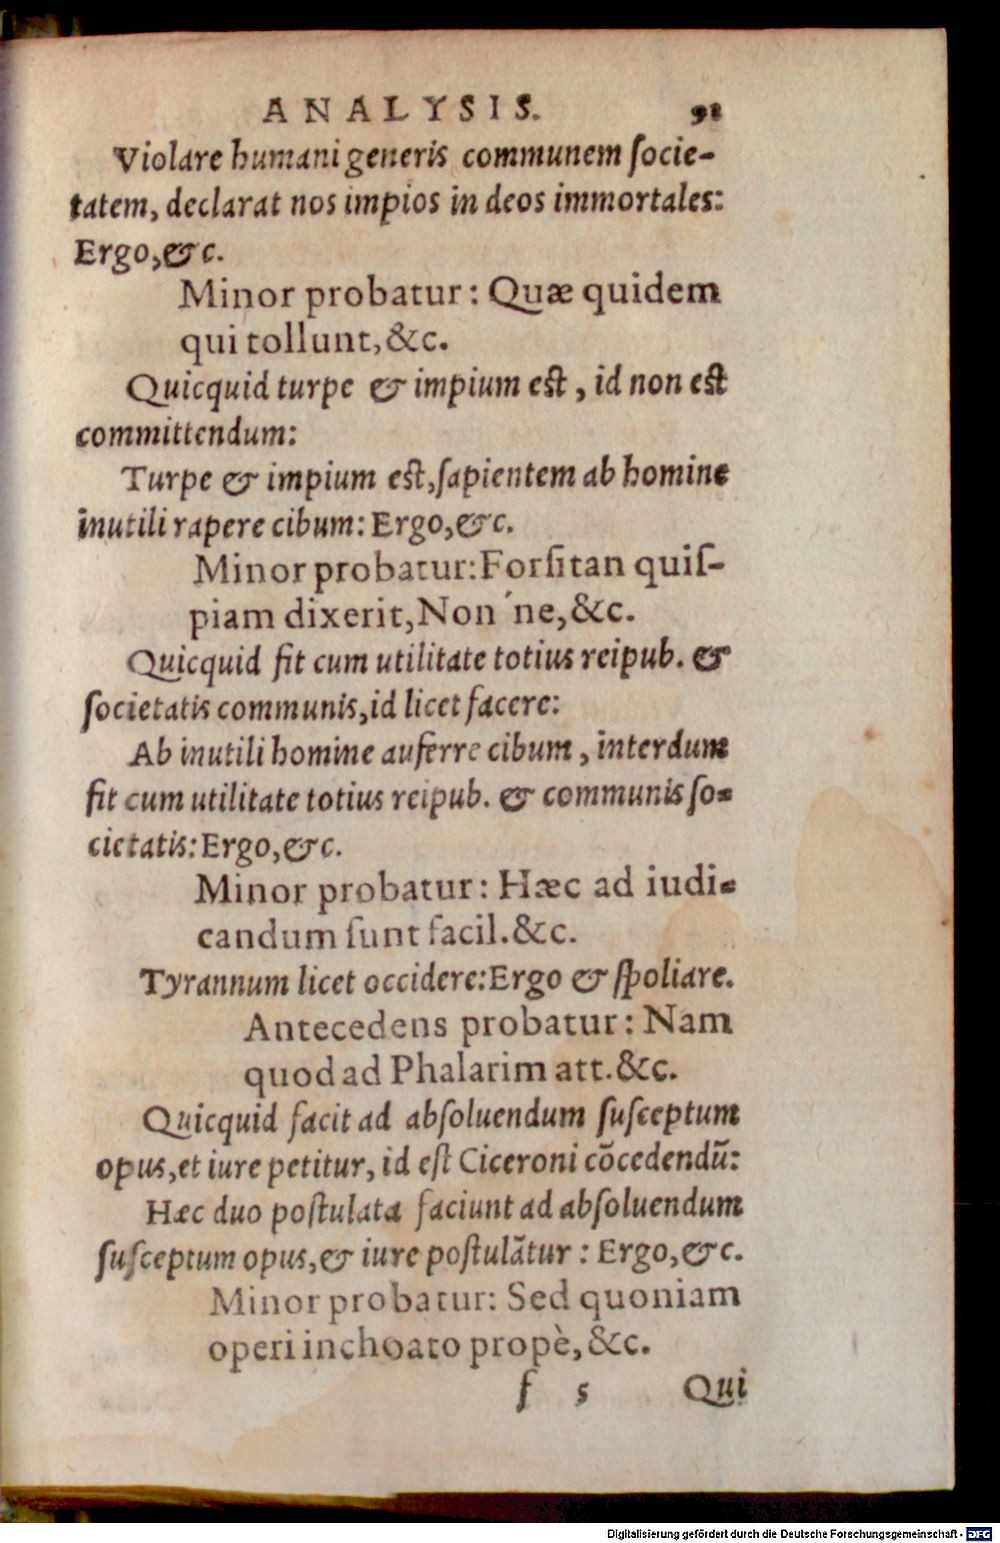 ANALYSIS. 91
Violare humani generis communem ſocie-
tatem, declarat nos impios in deos immortales:
Ergo, &c.
Minor probatur: Quæ quidem
qui tollunt, &c.
Quicquid turpe & impium eſt, id non eſt
committendum:
Turpe & impium eſt, ſapientem ab homine
inutili rapere cibum: Ergo, &c.
Minor probatur: Forſitan quiſ-
piam dixerit, Non´ne, &c.
Quicquid fit cum utilitate totius reipub. &
ſocietatis communis, id licet facere:
Ab inutili homine auferre cibum, interdum
fit cum utilitate totius reipub. & communis ſo-
cietatis: Ergo, &c.
Minor probatur: Hæc ad iudi-
candum ſunt facil. &c.
Tyrannum licet occidere: Ergo & ſpoliare.
Antecedens probatur: Nam
quod ad Phalarim att. &c.
Quicquid facit ad abſoluendum ſuſceptum
opus, et iure petitur, id eſt Ciceroni cõcedendũ:
Hæc duo poſtulata faciunt ad abſoluendum
ſuſceptum opus, & iure poſtulãtur: Ergo, &c.
Minor probatur: Sed quoniam
operi inchoato propè, &c.
f 5 Qui
Digitalisierung gefördert durch die Deutsche Forschungsgemeinschaft - DFG